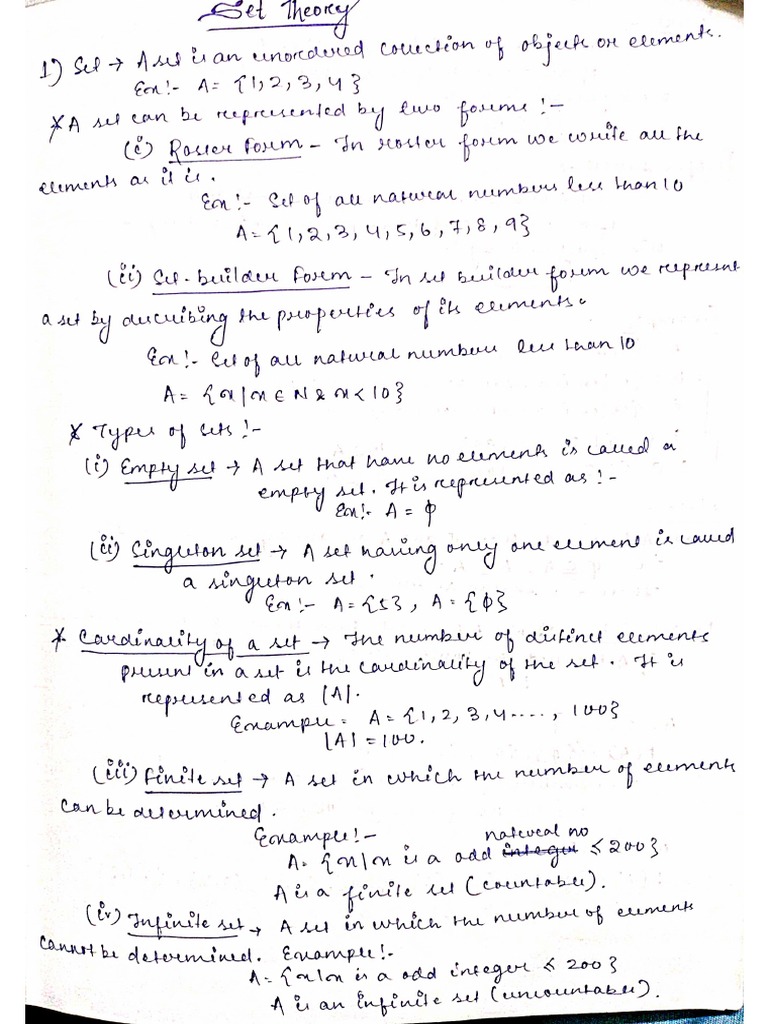 Set Theory
1) Set → A set is an unordered collection of objects or elements.
Ex:- A = {1, 2, 3, 4}
* A set can be represented by two forms :-
(i) Roster Form - In roster form we write all the
elements as it is.
Ex:- Set of all natural numbers less than 10
A = {1, 2, 3, 4, 5, 6, 7, 8, 9}
(ii) Set-builder Form - In set builder form we represent
a set by describing the properties of its elements.
Ex:- Set of all natural numbers less than 10
A = {x | x ∈ N & x < 10}
* Types of sets :-
(i) Empty set → A set that have no elements is called a
empty set. It is represented as :-
Ex:- A = ϕ
(ii) Singleton set → A set having only one element is called
a singleton set.
Ex:- A = {5}, A = {ϕ}
* Cardinality of a set → The number of distinct elements
present in a set is the cardinality of the set. It is
represented as |A|.
Example = A = {1, 2, 3, 4 ...., 100}
|A| = 100.
(iii) Finite set → A set in which the number of elements
can be determined.
Example:-
natural no
A = {x | x is a odd integer ≤ 200}
A is a finite set (countable).
(iv) Infinite set → A set in which the number of elements
cannot be determined. Example:-
A = {x | x is a odd integer ≤ 200}
A is an infinite set (uncountable).